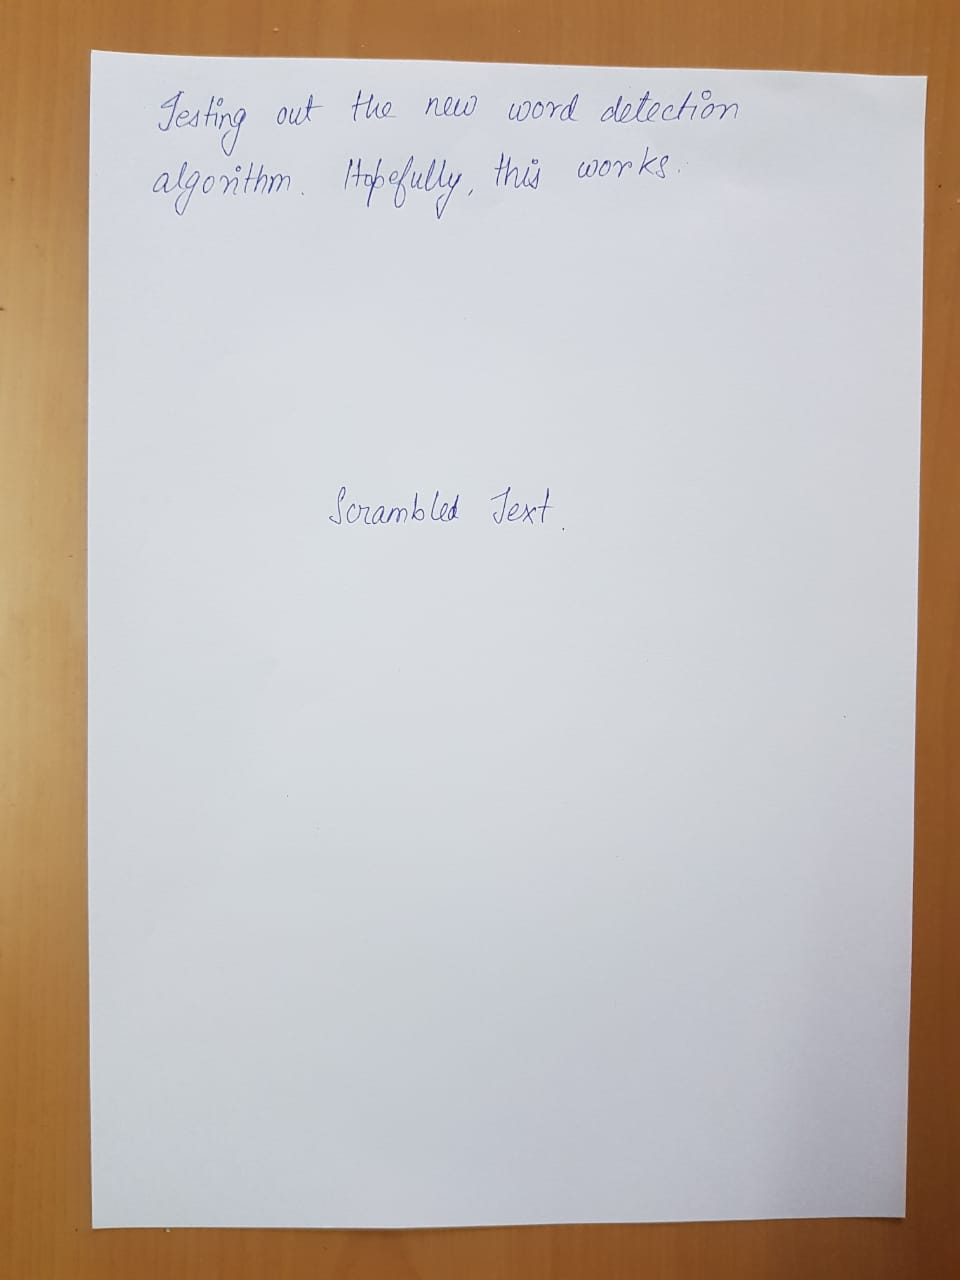 Testing out the new word detection
algorithm. Hopefully, this works.
Scrambled Text.